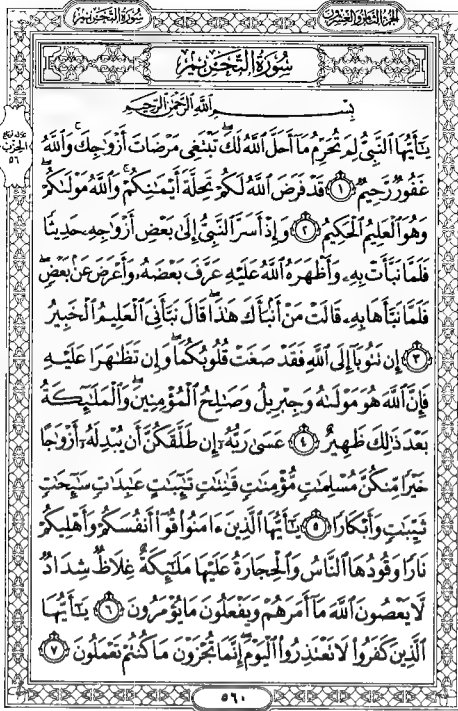 سُورَةُ التَّحْرِيمِ
الجزء الثامن والعشرون
سُورَةُ التَّحْرِيمِ
بِسْمِ اللَّهِ الرَّحْمَٰنِ الرَّحِيمِ
يَٰٓأَيُّهَا ٱلنَّبِىُّ لِمَ تُحَرِّمُ مَآ أَحَلَّ ٱللَّهُ لَكَ ۖ تَبْتَغِى مَرْضَاتَ أَزْوَٰجِكَ ۚ وَٱللَّهُ
غَفُورٌ رَّحِيمٌ ١ قَدْ فَرَضَ ٱللَّهُ لَكُمْ تَحِلَّةَ أَيْمَٰنِكُمْ ۚ وَٱللَّهُ مَوْلَىٰكُمْ ۖ
وَهُوَ ٱلْعَلِيمُ ٱلْحَكِيمُ ٢ وَإِذْ أَسَرَّ ٱلنَّبِىُّ إِلَىٰ بَعْضِ أَزْوَٰجِهِۦ حَدِيثًا
فَلَمَّا نَبَّأَتْ بِهِۦ وَأَظْهَرَهُ ٱللَّهُ عَلَيْهِ عَرَّفَ بَعْضَهُۥ وَأَعْرَضَ عَنۢ بَعْضٍ ۖ
فَلَمَّا نَبَّأَهَا بِهِۦ قَالَتْ مَنْ أَنۢبَأَكَ هَٰذَا ۖ قَالَ نَبَّأَنِىَ ٱلْعَلِيمُ ٱلْخَبِيرُ
٣ إِن تَتُوبَآ إِلَى ٱللَّهِ فَقَدْ صَغَتْ قُلُوبُكُمَا ۖ وَإِن تَظَٰهَرَا عَلَيْهِ
فَإِنَّ ٱللَّهَ هُوَ مَوْلَىٰهُ وَجِبْرِيلُ وَصَٰلِحُ ٱلْمُؤْمِنِينَ ۖ وَٱلْمَلَٰٓئِكَةُ
بَعْدَ ذَٰلِكَ ظَهِيرٌ ٤ عَسَىٰ رَبُّهُۥٓ إِن طَلَّقَكُنَّ أَن يُبْدِلَهُۥٓ أَزْوَٰجًا
خَيْرًا مِّنكُنَّ مُسْلِمَٰتٍ مُّؤْمِنَٰتٍ قَٰنِتَٰتٍ تَٰٓئِبَٰتٍ عَٰبِدَٰتٍ سَٰٓئِحَٰتٍ
ثَيِّبَٰتٍ وَأَبْكَارًا ٥ يَٰٓأَيُّهَا ٱلَّذِينَ ءَامَنُوا۟ قُوٓا۟ أَنفُسَكُمْ وَأَهْلِيكُمْ
نَارًا وَقُودُهَا ٱلنَّاسُ وَٱلْحِجَارَةُ عَلَيْهَا مَلَٰٓئِكَةٌ غِلَاظٌ شِدَادٌ
لَّا يَعْصُونَ ٱللَّهَ مَآ أَمَرَهُمْ وَيَفْعَلُونَ مَا يُؤْمَرُونَ ٦ يَٰٓأَيُّهَا
ٱلَّذِينَ كَفَرُوا۟ لَا تَعْتَذِرُوا۟ ٱلْيَوْمَ ۖ إِنَّمَا تُجْزَوْنَ مَا كُنتُمْ تَعْمَلُونَ ٧
الحزب
٥٦
٥٦٠